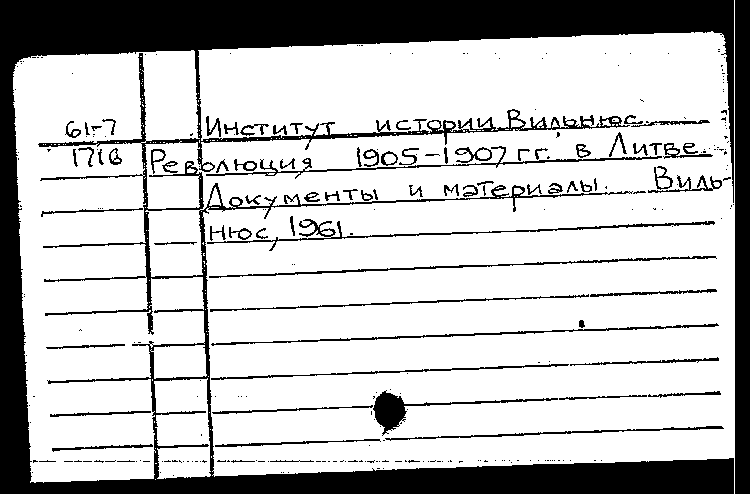 61-7 Институт истории. Вильнюс.
1716 Революция 1905-1907 гг. в Литве.
Документы и материалы. Виль-
нюс, 1961.